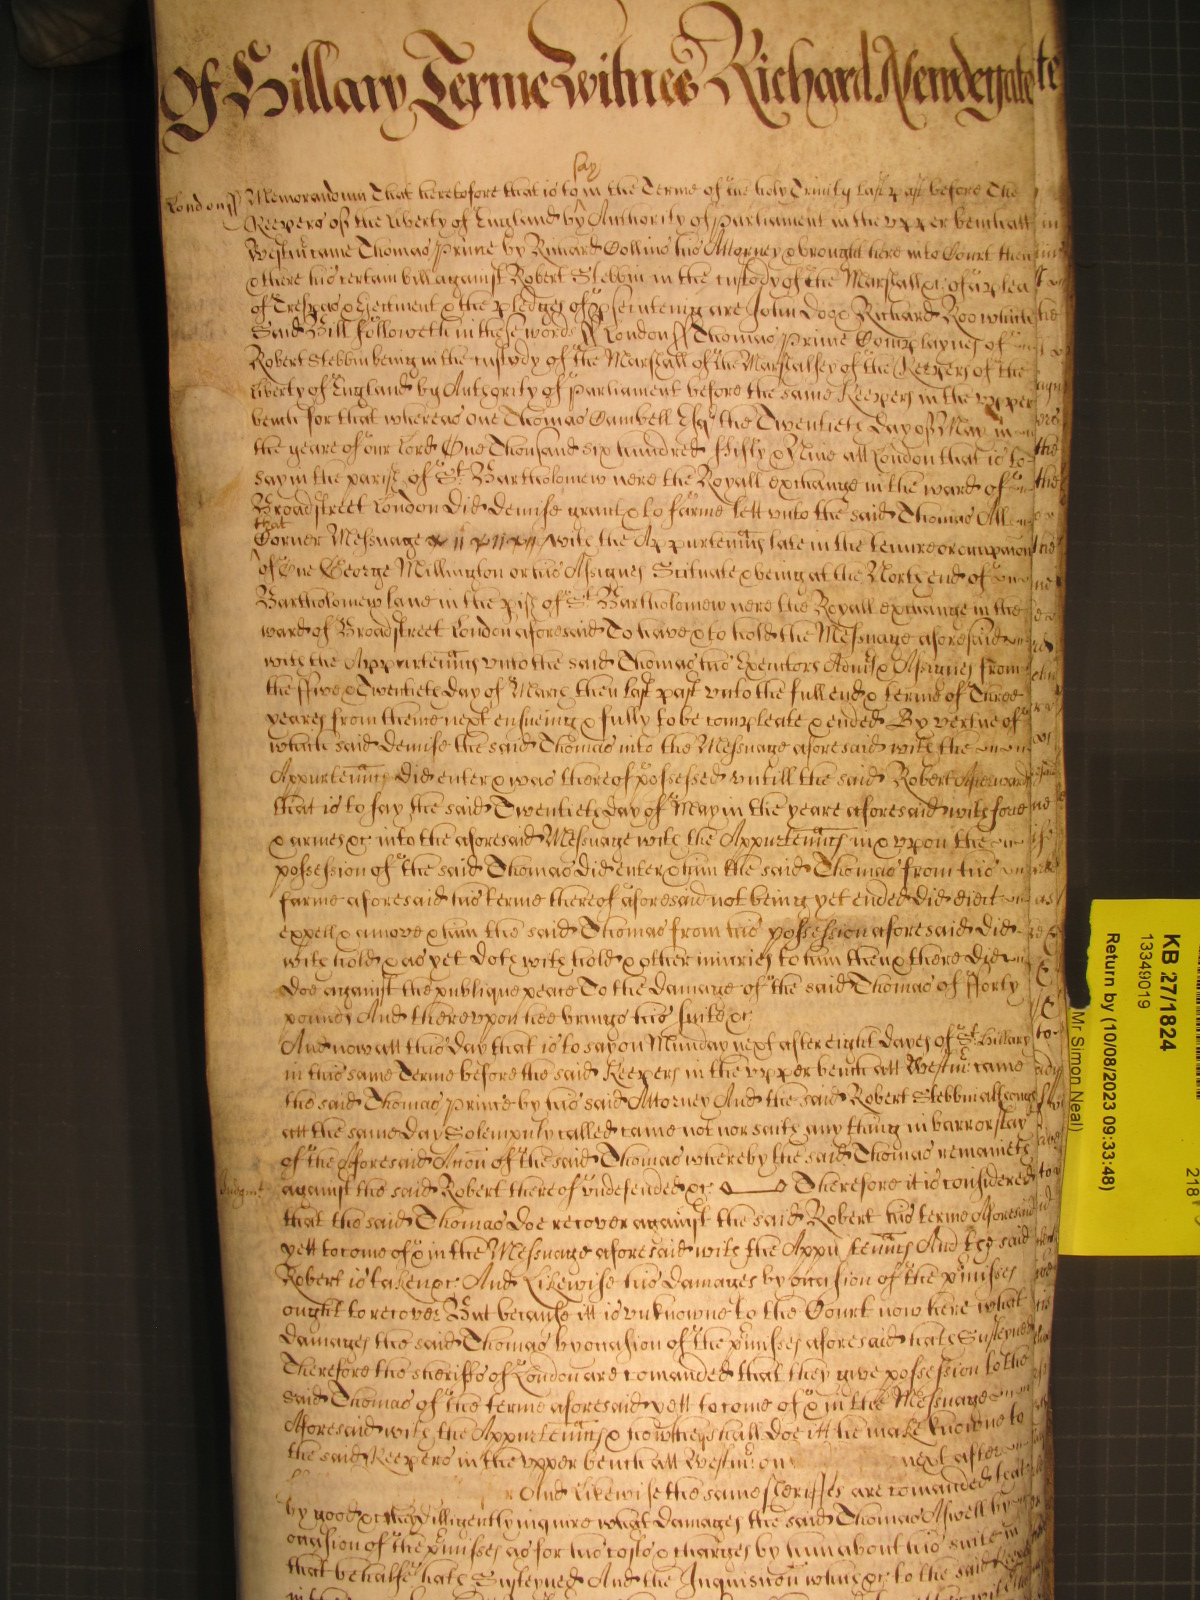 Of Hillary Terme Witnes Richard Newdegate te
say
London ss Memorandum That heretofore that is to in the Terme of the holy Trinity last past before The
Keepers of the liberty of England by Authority of Parliament in the upper bench att
Westm came Thomas Prime by Richard Collins his Attorney & brought here into Court then
& there his certain bill against Robert Stebbin in the custody of the Marshall &c of a plea
of Trespas & Ejectment & the pledges of psecuteing are John Doo & Richard Roo which
Said Bill followeth in these words ss London ss Thomas Prime Complaynes of
Robert Stebbin being in the custody of the Marshall of the Marshalsey of the Keepers of the
liberty of England by Authority of Parliament before the same Keepers in the upper
bench for that whereas one Thomas Cambell Esq the Twentieth day of May in
the yeare of our Lord One Thousand six hundred fifty & Nine att London that is to
say in the parish of St Bartholomew nere the Royall exchange in the ward of
Broadstreet London did demise grant & to farme lett unto the said Thomas All
that
Corner Messuage with the Appurtenncs late in the tenure or occupacion
of One George Millington or his Assignes Scituate & being at the North end of
Bartholomew lane in the pish of St Bartholomew nere the Royall exchange in the
ward of Broadstreet London aforesaid To have & to hold the Messuage aforesaid
with the Appurtenncs unto the said Thomas his Executors Admrs & Assignes from
the ffive & Twentieth day of March then last past unto the full end & terme of Three
yeares from thence next ensueing & fully to be compleate & ended By vertue of
which said demise the said Thomas into the Messuage aforesaid with the
Appurtenncs did enter & was thereof possessed untill the said Robert Afterwards
that is to say the said Twentieth day of May in the yeare aforesaid with force
& armes &c into the aforesaid Messuage with the Appurtenncs in & upon the
possession of the said Thomas did enter & him the said Thomas from his
farme aforesaid his terme thereof aforesaid not being yet ended did eiect
expell & amove & him the said Thomas from his possession aforesaid did
with hold & as yet doth with hold & other iniuries to him then & there did
doe against the publique peace To the damage of the said Thomas of fforty
pounds And thereupon hee brings his suite &c
And now att this day that is to say on Munday next after eight dayes of St Hillary
in this same Terme before the said Keepers in the upper bench att Westm came
the said Thomas Prime by his said Attorney And the said Robert Stebbin although
att the same day Solempnly called came not nor saith any thing in barr or stay
of the aforesaid Accon of the said Thomas whereby the said Thomas remaineth
Judgmt against the said Robert thereof undefended &c Therefore it is considered
that the said Thomas doe recover against the said Robert his terme Aforesaid
yett to come of & in the Messuage aforesaid with the Appurtenncs And the said
Robert is taken &c And Likewise his damages by occasion of the pmisses
ought to recover But because itt is unknowne to the Court now here what
damages the said Thomas by occasion of the pmisses aforesaid hath Susteyned
Therefore the sheriffs of London are comanded that they give possession to the
said Thomas of his terme aforesaid yett to come of & in the Messuage
Aforesaid with the Appurtenncs & how they shall doe itt he make knowne to
the said Keepers in the upper bench att Westm on next after
And Likewise the same sheriffes are comanded that
by good &c they dilligently inquire what damages the said Thomas Aswell by
occasion of the pmisses as for his costs & charges by him about his suite in
that behalfe hath Susteyned And the Inquisicion which &c to the said Keepers
KB 27/1824
13349019
Return by (10/08/2023 09:33:48)
Mr Simon Neal)